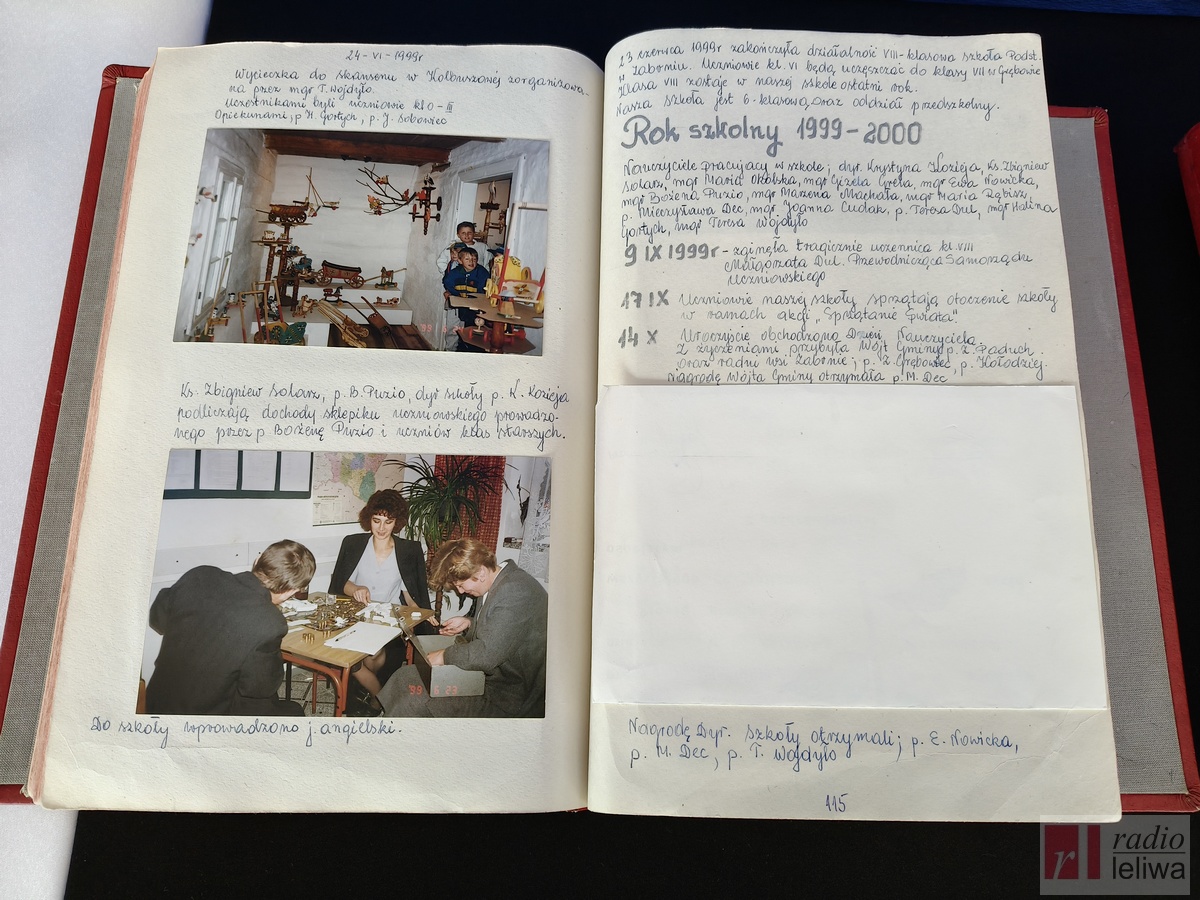 24-VI-1999r
Wycieczka do skansenu w Kolbuszowej zorganizowa-
na przez mgr T. Wojdyło.
Uczestnikami byli uczniowie kl 0-III
Opiekunami, p H. Gorłych, p. J. Sobowiec
Ks. Zbigniew Solarz, p. B. Puzio, dyr szkoły p. K. Kozieja
podliczają dochody sklepiku uczniowskiego prowadzo-
nego przez p Bożenę Puzio i uczniów klas starszych.
'99 6 23
Do szkoły wprowadzono j. angielski.
23 czerwca 1999r zakończyła działalność VIII-klasowa szkoła Podst.
w Zaborniu. Uczniowie kl. VI będą uczęszczać do klasy VII w Grębowie
Klasa VIII zostaje w naszej szkole ostatni rok.
Nasza szkoła jest 6-klasową, oraz oddział przedszkolny.
Rok szkolny 1999-2000
Nauczyciele pracujący w szkole; dyr. Krystyna Kozieja, Ks. Zbigniew
Solarz, mgr Maria Okólska, mgr Gizela Grela, mgr Ewa Nowicka,
mgr Bożena Puzio, mgr Marzena Machała, mgr Maria Rębisz,
p. Mieczysława Dec, mgr Joanna Cudak, p. Teresa Dul, mgr Halina
Gorłych, mgr Teresa Wojdyło
9 IX 1999r - zginęła tragicznie uczennica kl. VIII
Małgorzata Dul. Przewodnicząca Samorządu
Uczniowskiego
17 IX Uczniowie naszej szkoły sprzątają otoczenie szkoły
w ramach akcji „Sprzątanie Świata".
14 X Uroczyście obchodzono Dzień Nauczyciela.
Z życzeniami przybyła Wójt Gminy p. Z. Paduch.
oraz radni wsi Zabrnie; p. Z. Grębowiec, p. Kołodziej.
Nagrodę Wójta Gminy otrzymała p. M. Dec
Nagrodę Dyr. szkoły otrzymali; p. E. Nowicka,
p. M. Dec, p. T. Wojdyło
115
radio
leliwa